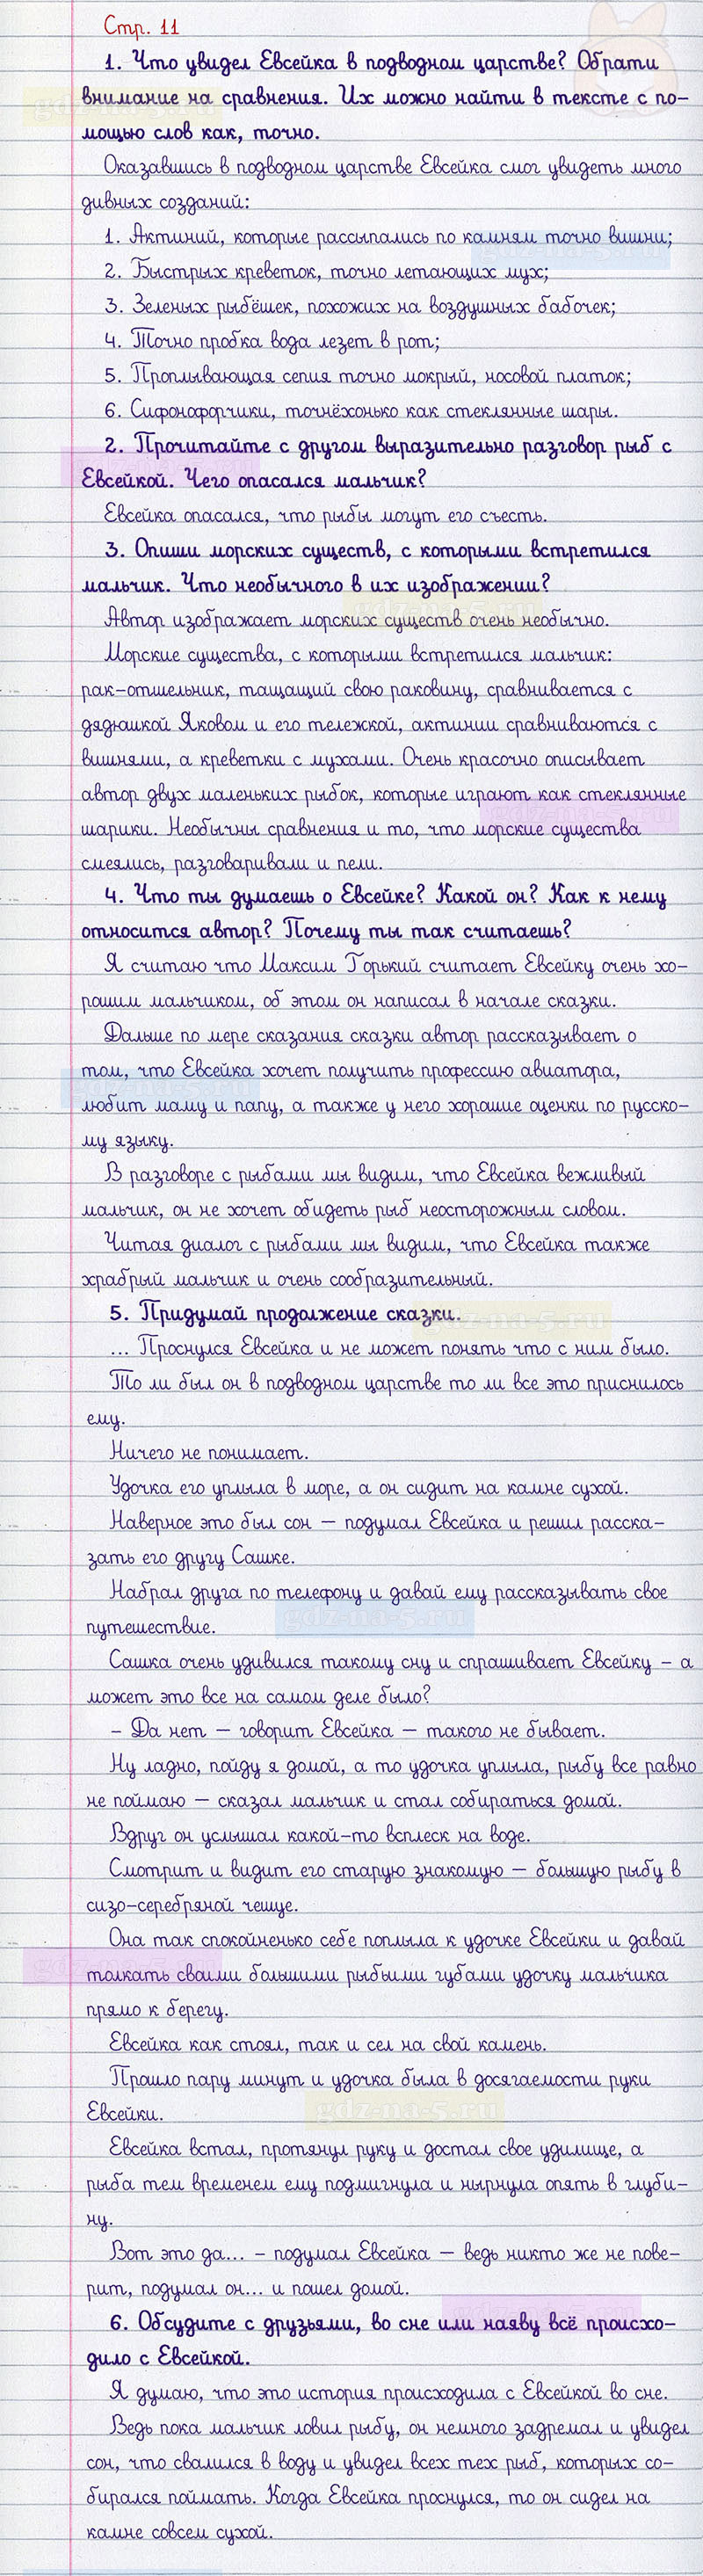 Стр. 11
1. Что увидел Евсейка в подводном царстве? Обрати
внимание на сравнения. Их можно найти в тексте с по-
мощью слов как, точно.
Оказавшись в подводном царстве Евсейка смог увидеть много
дивных созданий:
1. Актиний, которые рассыпались по камням точно вишни;
2. Быстрых креветок, точно летающих мух;
3. Зеленых рыбёшек, похожих на воздушных бабочек;
4. Точно пробка вода лезет в рот;
5. Проплывающая сепия точно мокрый, носовой платок;
6. Сифонофорчики, точнёхонько как стеклянные шары.
2. Прочитайте с другом выразительно разговор рыб с
Евсейкой. Чего опасался мальчик?
Евсейка опасался, что рыбы могут его съесть.
3. Опиши морских существ, с которыми встретился
мальчик. Что необычного в их изображении?
Автор изображает морских существ очень необычно.
Морские существа, с которыми встретился мальчик:
рак-отшельник, тащащий свою раковину, сравнивается с
дядюшкой Яковом и его тележкой, актинии сравниваются с
вишнями, а креветки с мухами. Очень красочно описывает
автор двух маленьких рыбок, которые играют как стеклянные
шарики. Необычны сравнения и то, что морские существа
смеялись, разговаривали и пели.
4. Что ты думаешь о Евсейке? Какой он? Как к нему
относится автор? Почему ты так считаешь?
Я считаю что Максим Горький считает Евсейку очень хо-
рошим мальчиком, об этом он написал в начале сказки.
Дальше по мере сказания сказки автор рассказывает о
том, что Евсейка хочет получить профессию авиатора,
любит маму и папу, а также у него хорошие оценки по русско-
му языку.
В разговоре с рыбами мы видим, что Евсейка вежливый
мальчик, он не хочет обидеть рыб неосторожным словом.
Читая диалог с рыбами мы видим, что Евсейка также
храбрый мальчик и очень сообразительный.
5. Придумай продолжение сказки.
... Проснулся Евсейка и не может понять что с ним было.
То ли был он в подводном царстве то ли все это приснилось
ему.
Ничего не понимает.
Удочка его уплыла в море, а он сидит на камне сухой.
Наверное это был сон — подумал Евсейка и решил расска-
зать его другу Сашке.
Набрал друга по телефону и давай ему рассказывать свое
путешествие.
Сашка очень удивился такому сну и спрашивает Евсейку – а
может это все на самом деле было?
– Да нет — говорит Евсейка — такого не бывает.
Ну ладно, пойду я домой, а то удочка уплыла, рыбу все равно
не поймаю — сказал мальчик и стал собираться домой.
Вдруг он услышал какой-то всплеск на воде.
Смотрит и видит его старую знакомую — большую рыбу в
сизо-серебряной чешуе.
Она так спокойненько себе поплыла к удочке Евсейки и давай
толкать своими большими рыбьими губами удочку мальчика
прямо к берегу.
Евсейка как стоял, так и сел на свой камень.
Прошло пару минут и удочка была в досягаемости руки
Евсейки.
Евсейка встал, протянул руку и достал свое удилище, а
рыба тем временем ему подмигнула и нырнула опять в глуби-
ну.
Вот это да... – подумал Евсейка — ведь никто же не пове-
рит, подумал он... и пошел домой.
6. Обсудите с друзьями, во сне или наяву всё происхо-
дило с Евсейкой.
Я думаю, что это история происходила с Евсейкой во сне.
Ведь пока мальчик ловил рыбу, он немного задремал и увидел
сон, что свалился в воду и увидел всех тех рыб, которых со-
бирался поймать. Когда Евсейка проснулся, то он сидел на
камне совсем сухой.